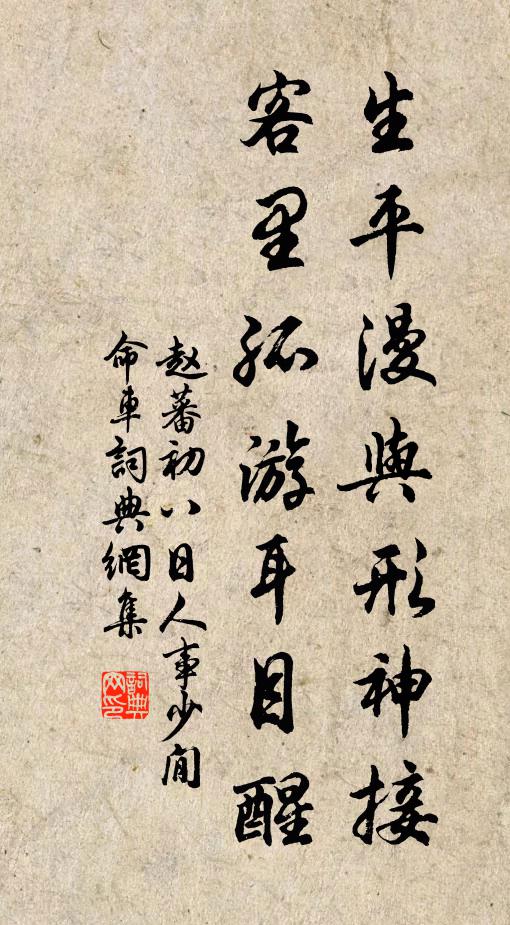 生平漫與形神接
客里孤游耳目醒
趙蕃初八日人事少閒
命車詞典網集
詞典網印